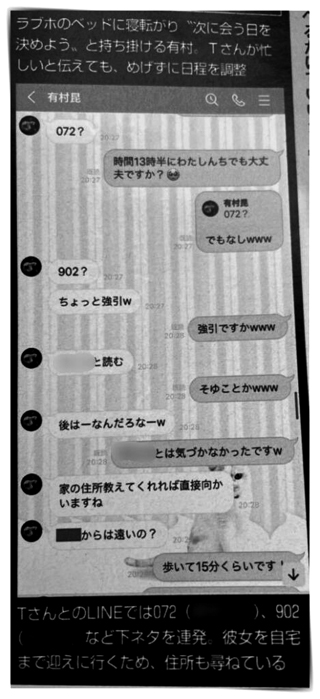 ラブホのベッドに寝転がり〝次に会う日を
決めよう〟と持ち掛ける有村。Tさんが忙
しいと伝えても、めげずに日程を調整
有村昆
072？
20:27
時間13時半にわたしんちでも大丈
夫ですか？
既読
20:27
有村昆
072？
でもなしwww
既読
20:27
902？
20:27
ちょっと強引w
20:27
強引ですかwww
既読
20:28
と読む
20:28
そゆことかwww
既読
20:28
後はーなんだろなーw
20:28
とは気づかなかったですw
家の住所教えてくれれば直接向か
いますね
20:28
からは遠いの？
歩いて15分くらいです
20:28
TさんとのLINEでは072（　　　）、902
（　　　など下ネタを連発。彼女を自宅
まで迎えに行くため、住所も尋ねている